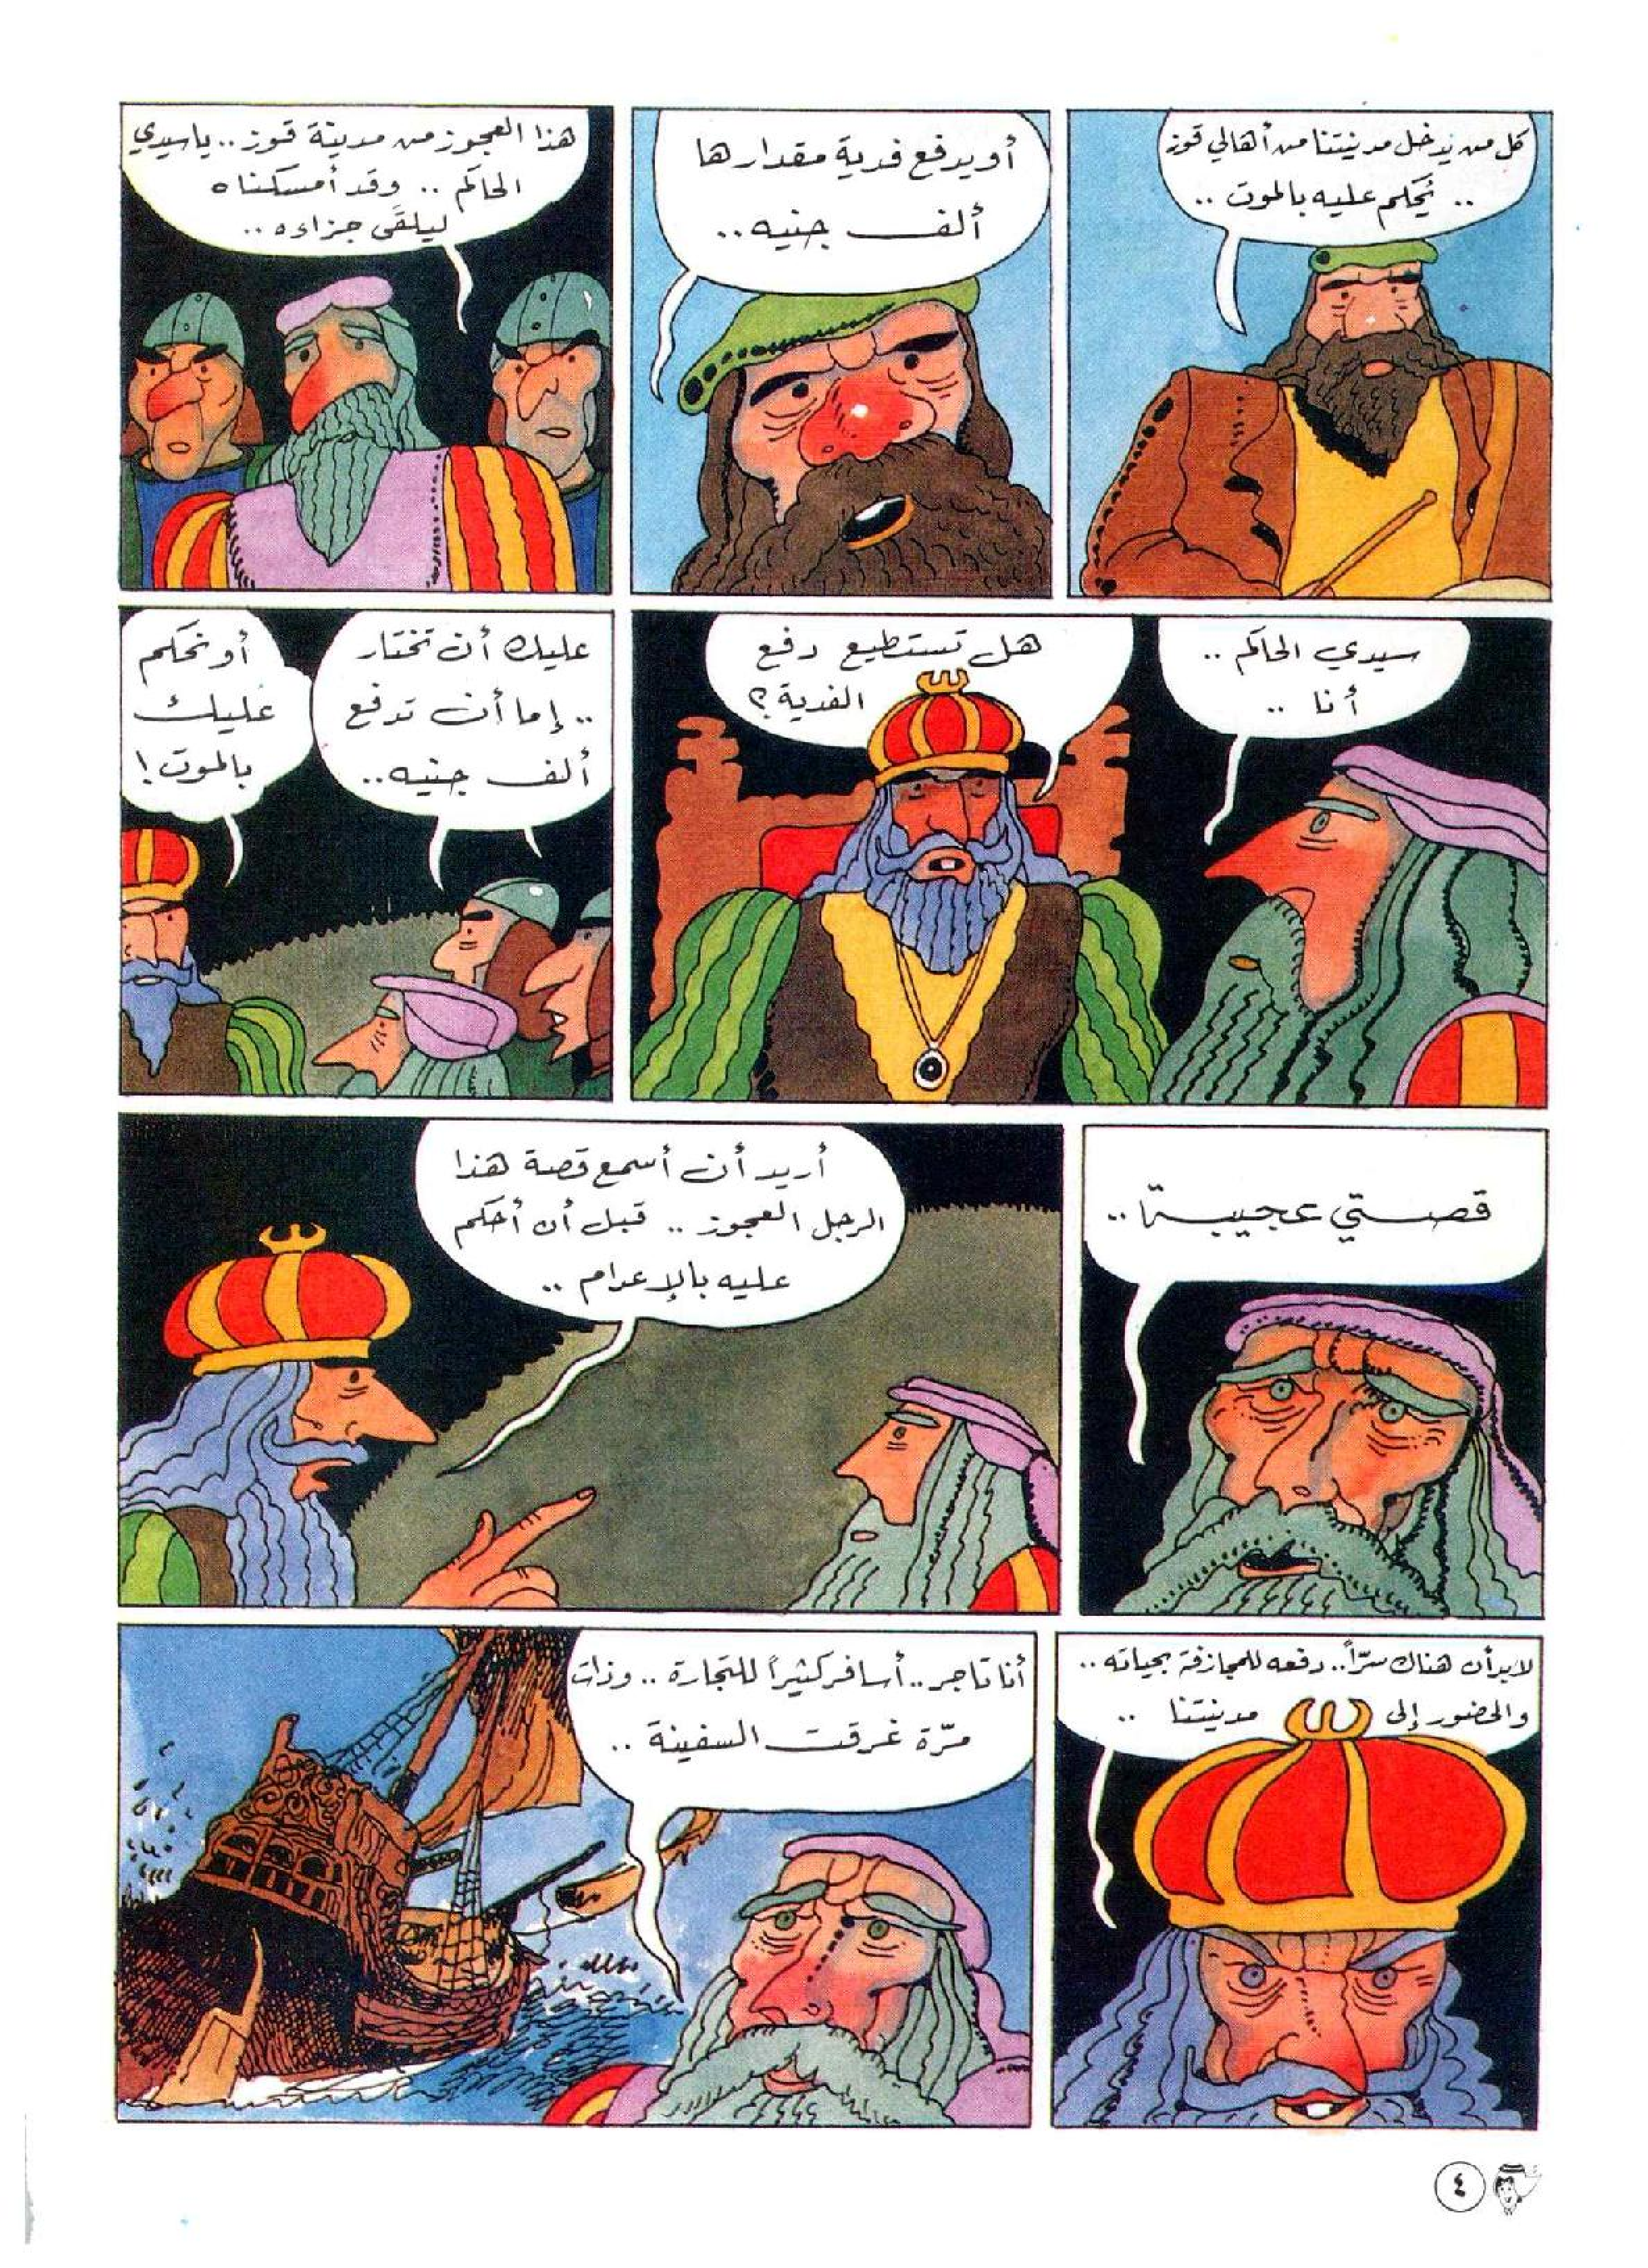 كل من يدخل مدينتنا من أهالي قوز
.. يُحكم عليه بالموت ..
أو يدفع فدية مقدارها
ألف جنيه ..
هذا العجوز من مدينة قوز .. يا سيدي
الحاكم .. وقد أمسكناه
ليلقَى جزاءه ..
سيدي الحاكم ..
أنا ..
هل تستطيع دفع
الفدية ؟
عليك أن تختار
.. إما أن تدفع
ألف جنيه ..
أو نحكم
عليك
بالموت !
قصتي عجيبة ..
أريد أن أسمع قصة هذا
الرجل العجوز .. قبل أن أحكم
عليه بالإعدام ..
لابد أن هناك سرّاً .. دفعه للمجازفة بحياته ..
والحضور إلى مدينتنا ..
أنا تاجر .. أسافر كثيراً للتجارة .. وذات
مرّة غرقت السفينة ..
٤